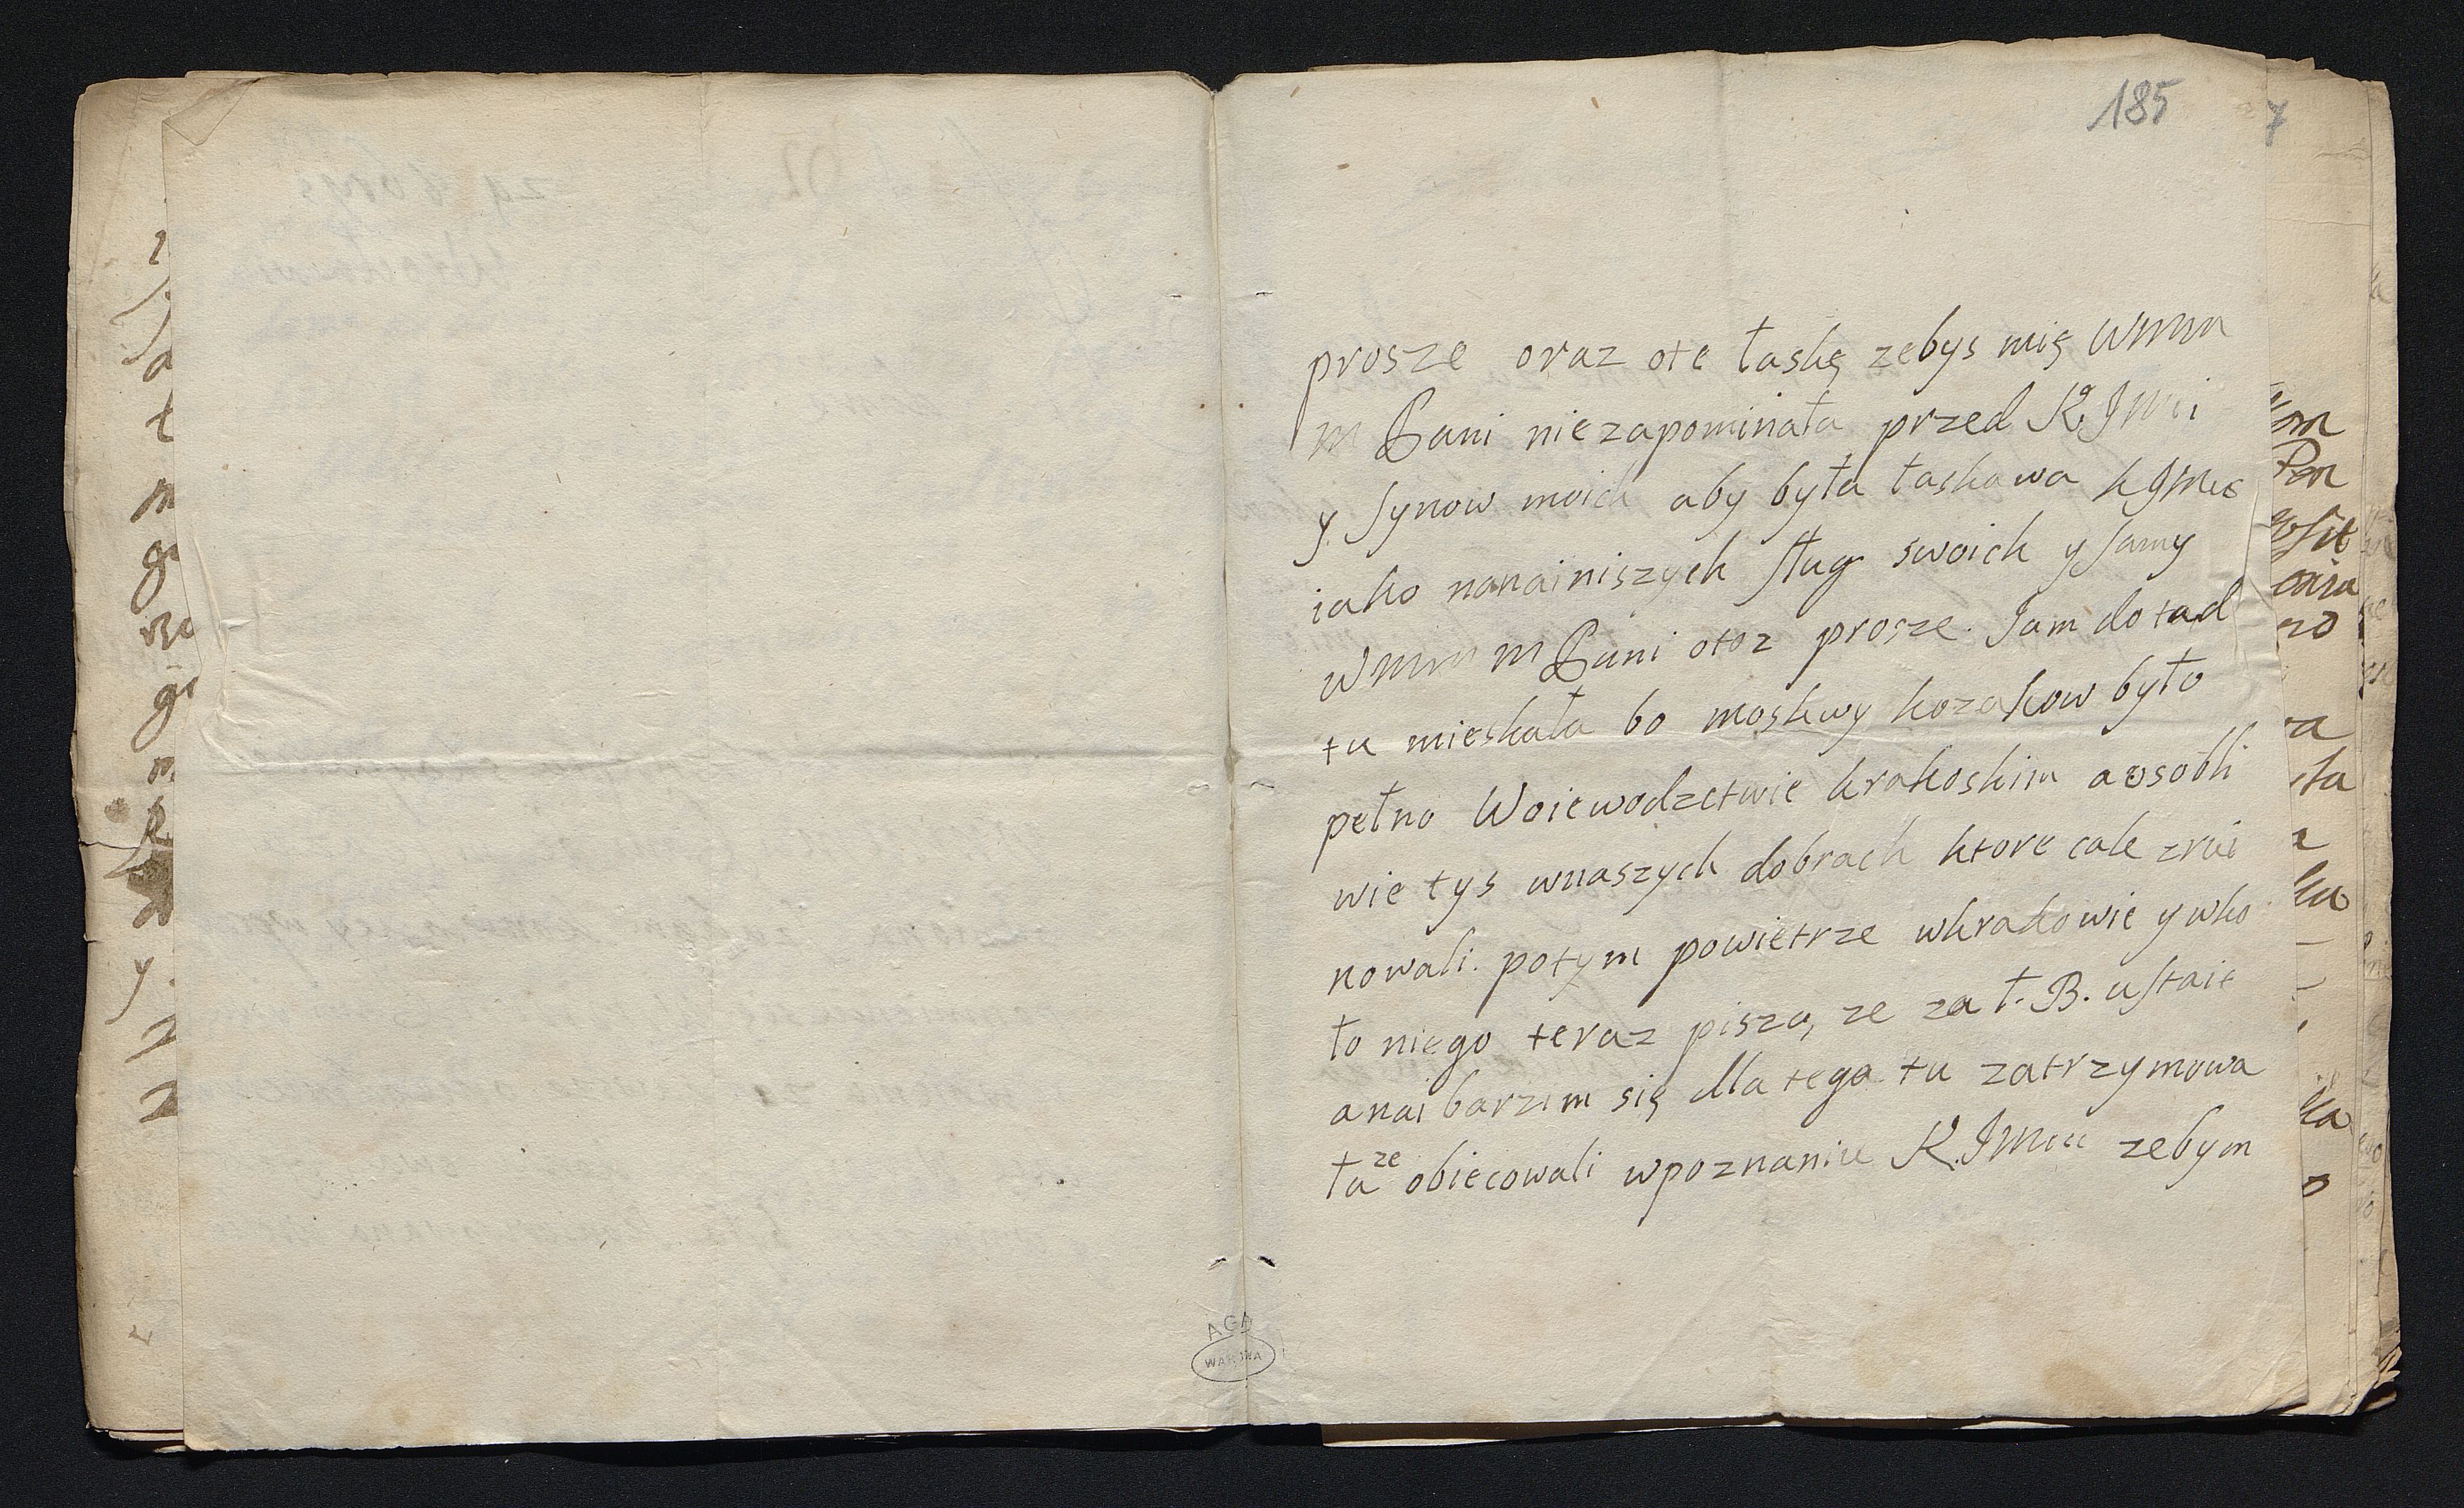 185
7
prosze oraz ote łaskę zebys mię WMM
m Pani niezapominała przed K. JMci
y synow moich aby była łaskawa
iako nanainiszych sług swoich y samy
WMM M Pani otoz prosze. Jam dotad
tu mieskała bo moskwy kozakow było
pełno Woiewodzctwie krakoskim aosobli
wie tys wnaszych dobrach ktore cale zrui
nowali. potym powietrze wkrakowie y wko
ło niego teraz piszą, ze za ł. B. ustaie
anai barzim się dla tego tu zatrzymowa
ła ze obiecowali wpoznaniu K. JMcii zebym
AGA
WARSZAWA